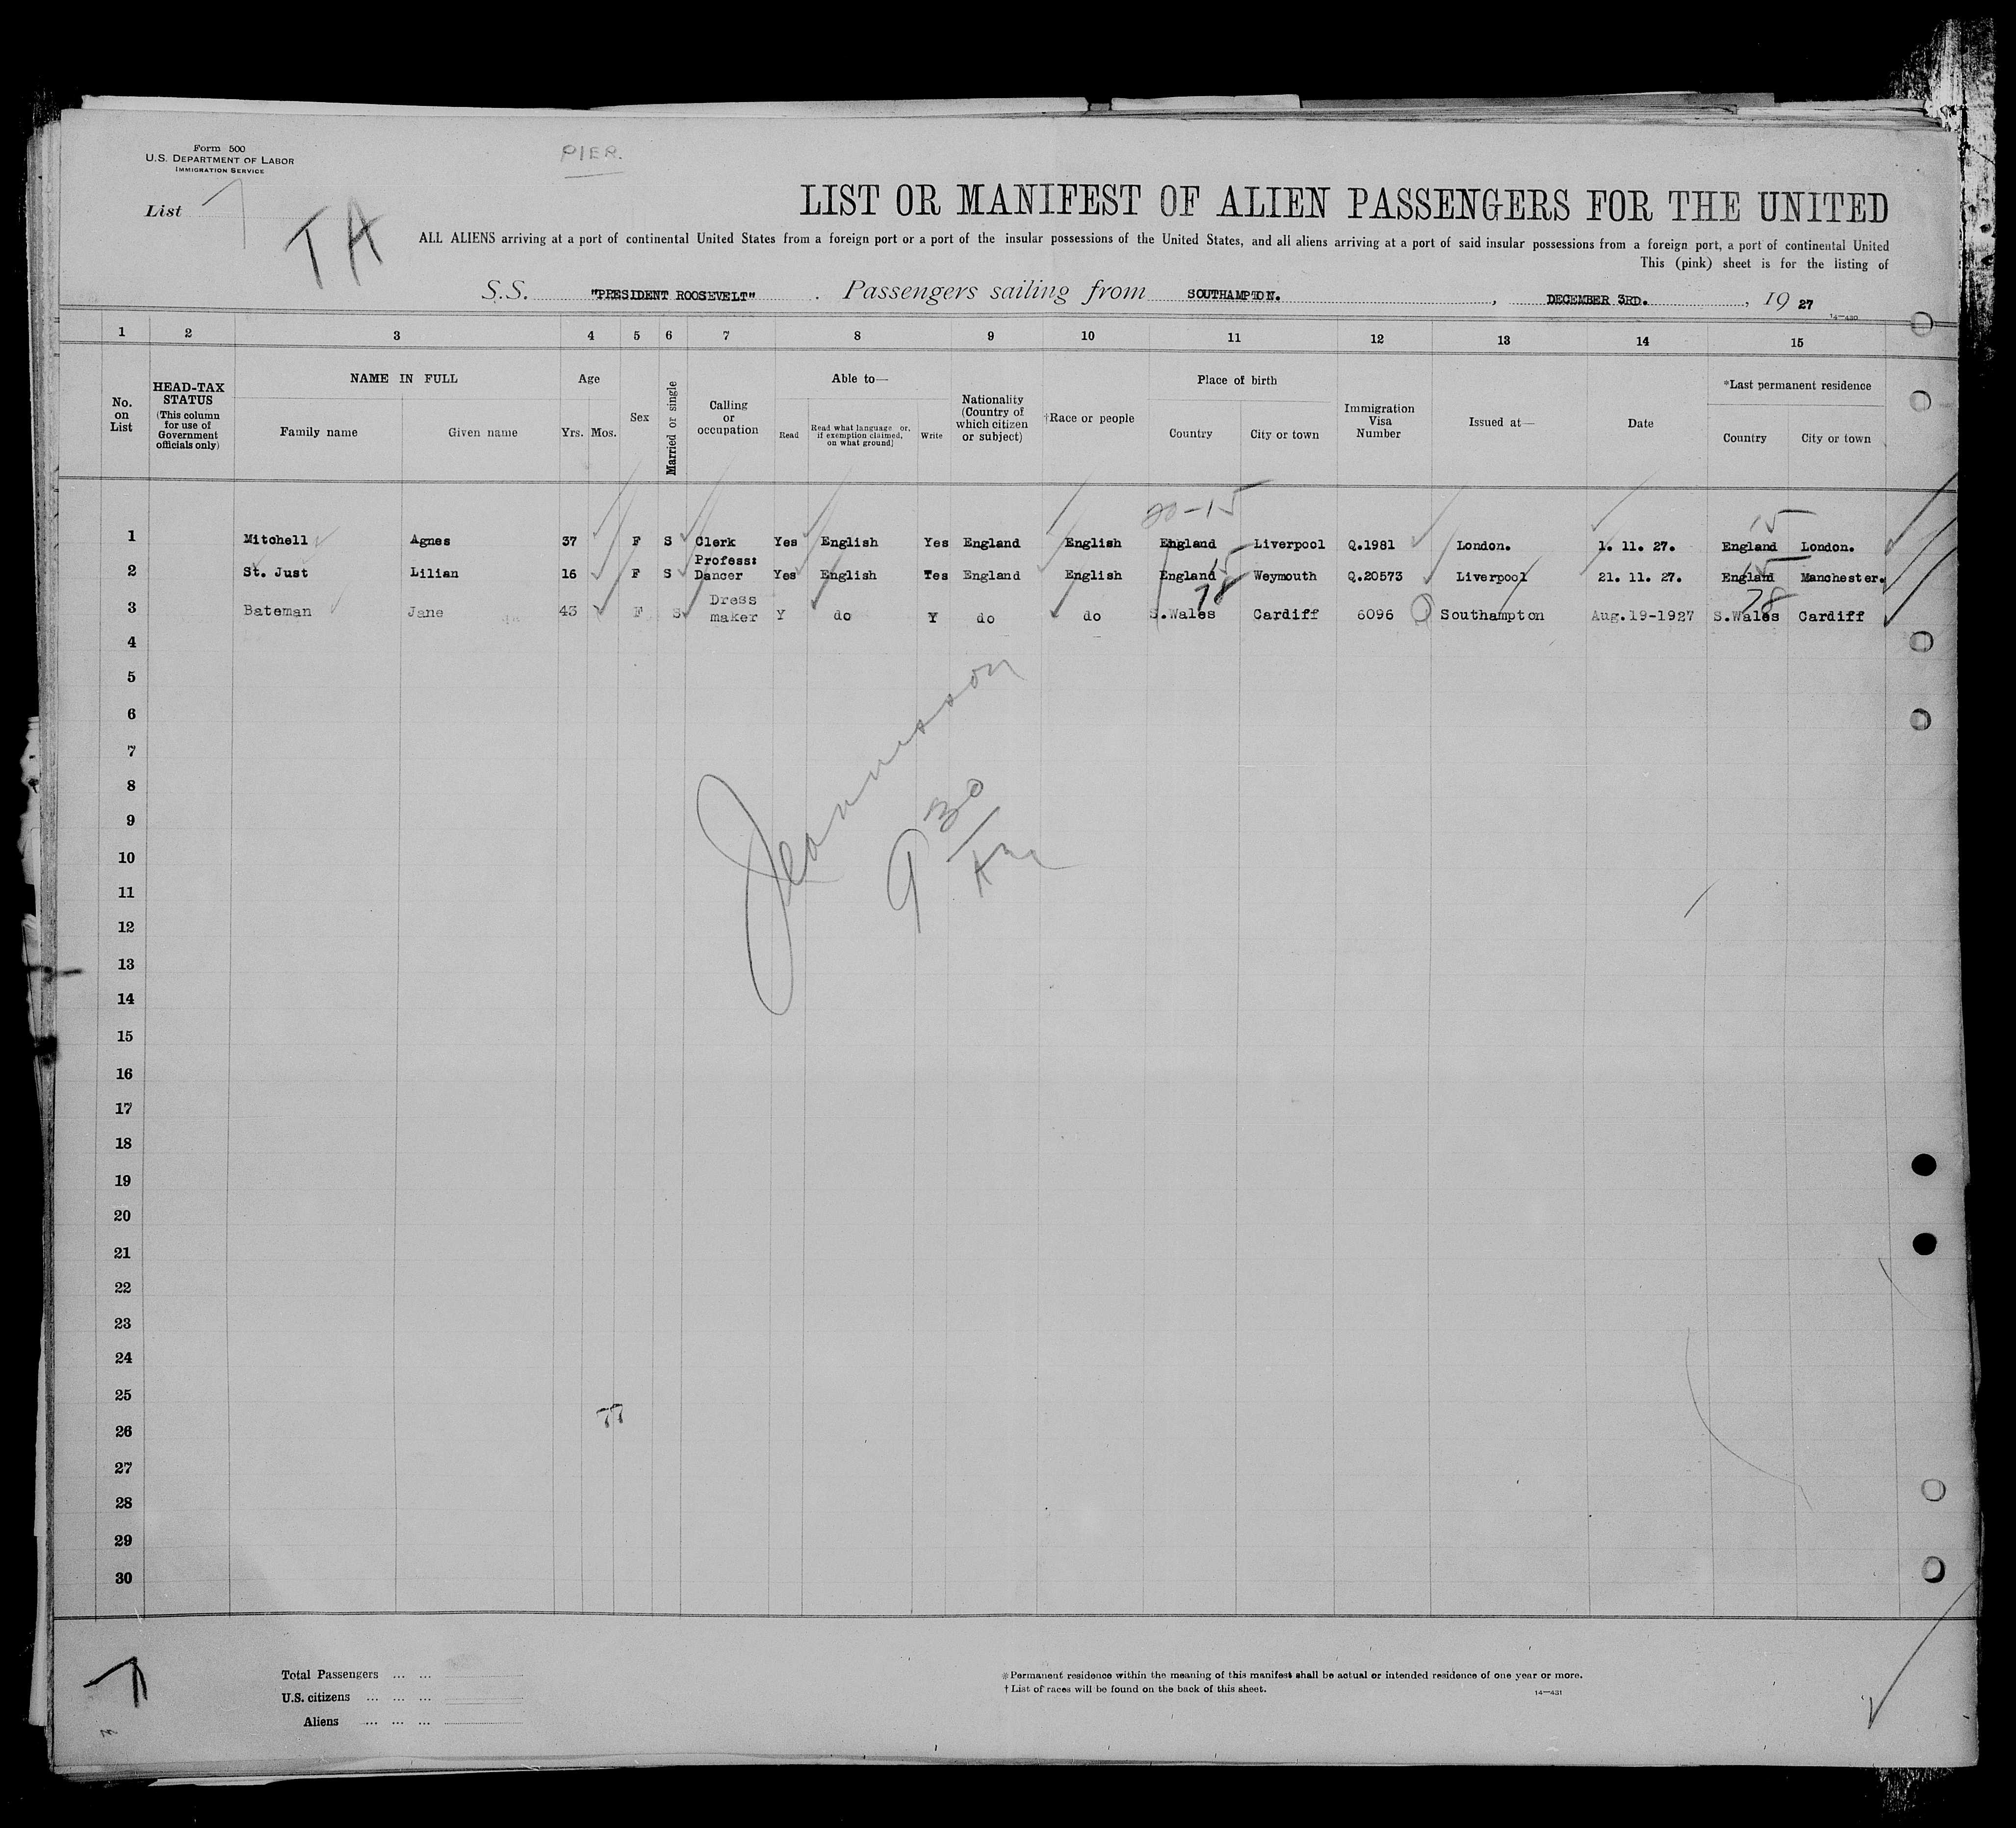 Form 500
U.S. DEPARTMENT OF LABOR
IMMIGRATION SERVICE
PIER.
List
TA
LIST OR MANIFEST OF ALIEN PASSENGERS FOR THE UNITED
ALL ALIENS arriving at a port of continental United States from a foreign port or a port of the insular possessions of the United States, and all aliens arriving at a port of said insular possessions from a foreign port, a port of continental United
This (pink) sheet is for the listing of
S.S. "PRESIDENT ROOSEVELT" . Passengers sailing from SOUTHAMPTON. , DECEMBER 3RD. , 19 27
14—430
1 2 3 4 5 6 7 8 9 10 11 12 13 14 15
No. on List
HEAD-TAX STATUS (This column for use of Government officials only)
NAME IN FULL
Family name Given name
Age
Yrs. Mos.
Sex
Married or single
Calling or occupation
Able to—
Read Read what language [or, if exemption claimed, on what ground] Write
Nationality (Country of which citizen or subject)
†Race or people
Place of birth
Country City or town
Immigration Visa Number
Issued at—
Date
*Last permanent residence
Country City or town
20-15 15
1 Mitchell Agnes 37 F S Clerk Yes English Yes England English England Liverpool Q.1981 London. 1. 11. 27. England London.
15 15
2 St. Just Lilian 16 F S Profess: Dancer Yes English Yes England English England Weymouth Q.20573 Liverpool 21. 11. 27. England Manchester.
78 78
3 Bateman Jane 43 F S Dress maker Y do Y do do S.Wales Cardiff 6096 Southampton Aug.19-1927 S.Wales Cardiff
4
5
6
7
8
9
10
11
12
13
14
15
16
17
18
19
20
21
22
23
24
25
26
27
28
29
30
9 30 Am
Total Passengers ... ...
U.S. citizens ... ... ...
Aliens ... ... ...
*Permanent residence within the meaning of this manifest shall be actual or intended residence of one year or more.
†List of races will be found on the back of this sheet.
14—431